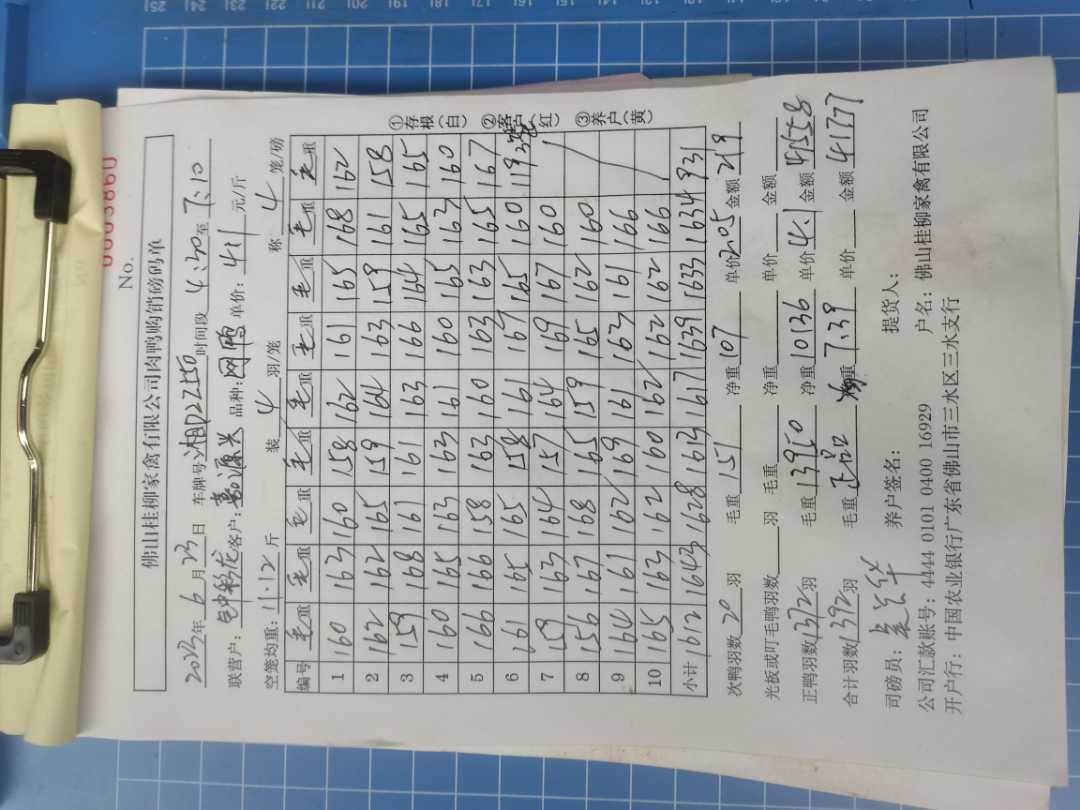 No. 0003860
佛山桂柳家禽有限公司肉鸭购销磅码单
2022年 6月 23日 车牌号:湘D2Z550 时间段 4:50至 7:10
联营户: 客户:嘉源兴 品种: 单价: 4.1 元/斤
空笼均重: 11.12 斤 装 4 羽/笼 称 4 笼/磅
编号 毛重 毛重 毛重 毛重 毛重 毛重 毛重 毛重 毛重
1 160 163 160 158 162 161 165 168 162
2 162 162 165 159 164 163 159 161 158
3 159 168 161 161 163 166 164 165 165
4 160 165 163 163 161 160 165 163 160
5 166 166 158 163 160 163 163 165 167
6 161 165 165 158 161 167 165 160 119
7 159 163 164 157 164 169 167 160
8 156 167 168 165 159 165 162 160
9 164 161 162 169 161 163 161 166
10 165 163 162 160 162 162 162 166
小计 1612 1643 1628 1613 1617 1639 1633 1634 931
①存根(白)
②客户(红)
③养户(黄)
次鸭羽数 20 羽 毛重 151 净重 107 单价 2.05 金额 219
光板或叮毛鸭羽数 羽 毛重 净重 单价 金额
正鸭羽数 1372 羽 毛重 13950 净重 10136 单价 4.1 金额 41558
合计羽数 1392 羽 毛重 正品 均重 7.39 单价 金额 41777
司磅员: 养户签名: 提货人:
公司汇款账号: 4444 0101 0400 16929 户名: 佛山桂柳家禽有限公司
开户行: 中国农业银行广东省佛山市三水区三水支行